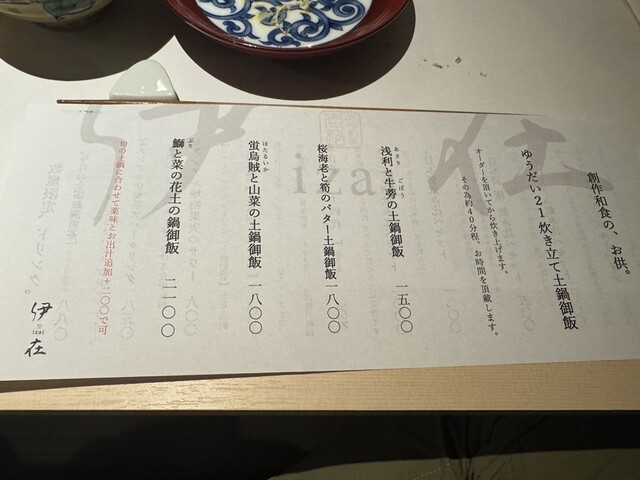 創作和食の、お供。
ゆうだい21 炊き立て土鍋御飯
オーダーを頂いてから炊き上げます。
その為約40分程、お時間を頂戴します。
浅利と牛蒡の土鍋御飯 一五〇〇
あさり ごぼう
桜海老と筍のバター土鍋御飯 一八〇〇
蛍烏賊と山菜の土鍋御飯 一八〇〇
ほたるいか
鰤と菜の花土の鍋御飯 二一〇〇
ぶり
旬の土鍋に合わせて薬味とお出汁追加+二〇〇で可
伊在
izai